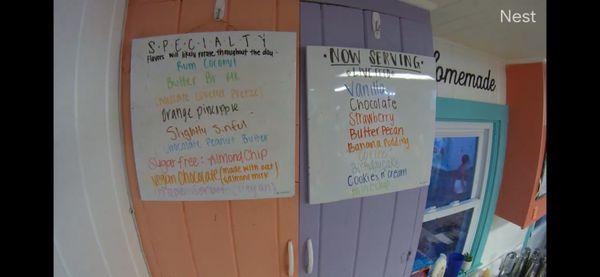 Nest
SPECIALTY
Flavors will likely rotate throughout the day
Rum Coconut
Butter
Orange Pineapple
Slightly Sinful
Chocolate Peanut Butter
Sugar free: Almond Chip
Vegan Chocolate (made with oat
& almond milk)
(Vegan)
• NOW SERVING •
Vanilla
Chocolate
Strawberry
Butter Pecan
Banana Pudding
Coffee
Birthday Cake
Cookies n' cream
Mint Chip
Homemade